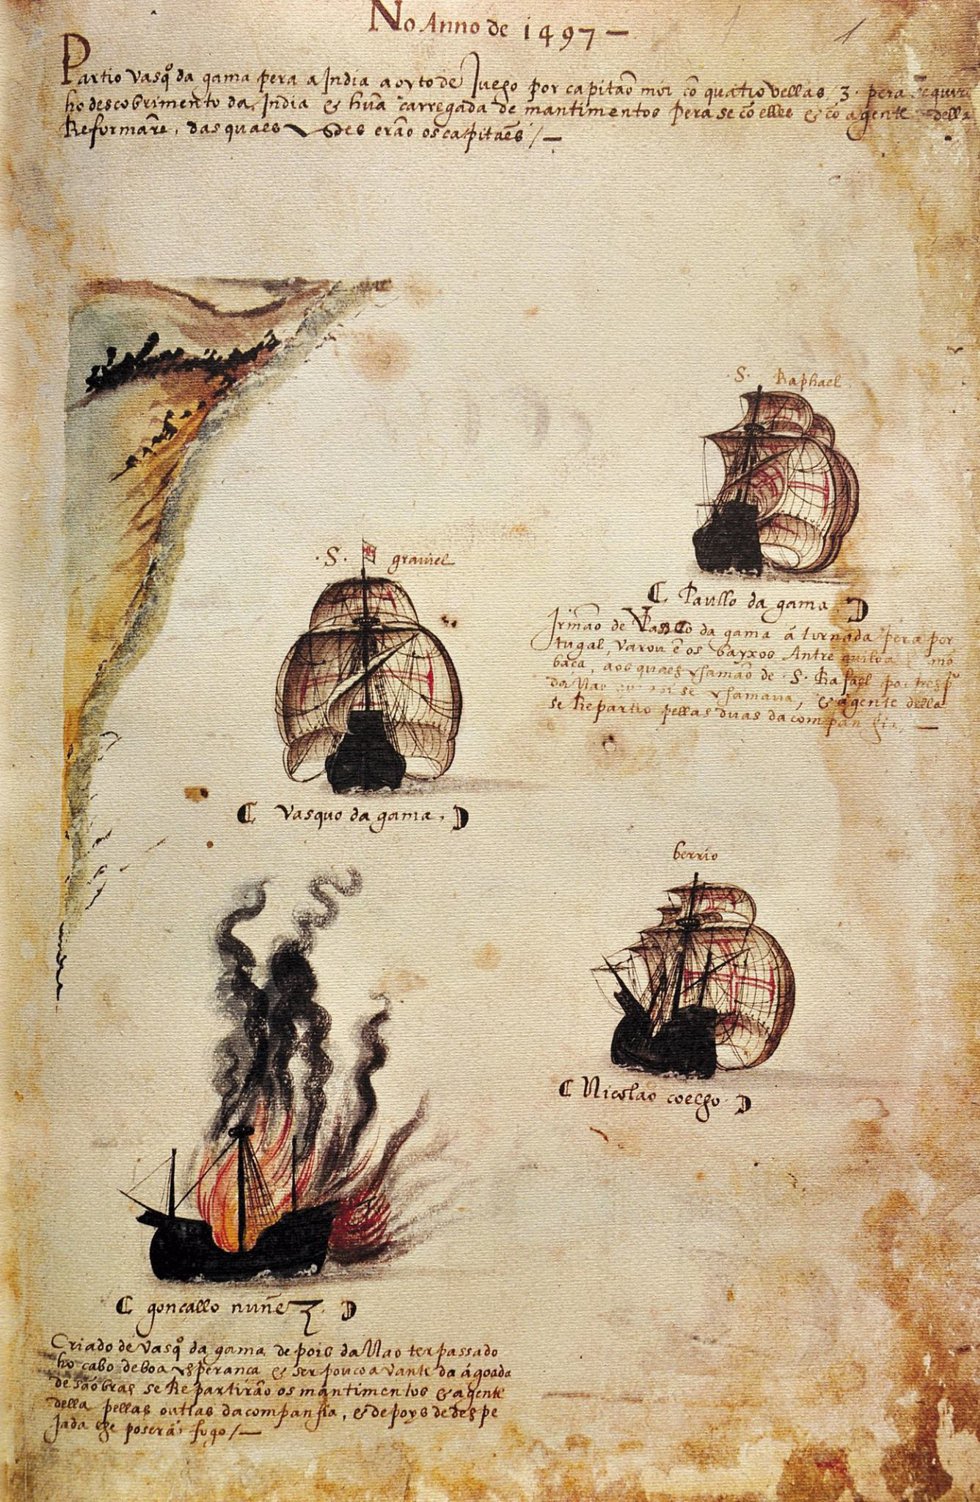 No Anno de 1497 —
Partio Vasqº da gama pera a India a oyto de Juego por capitaõ mói cõ quatro vellas, 3. pera
ho descobrimento da India & huã carregada de mantimentos pera se cõ elles & cõ a gente della
Reformarẽ, das quaes erão os capitaẽs /—
S. Raphael
.S. graviel
( Paullo da gama )
Irmão de Vasco da gama á tornada pera por
tugal, varou ẽ os bayxos Antre quiloa mõ
baça, aos quaes chamão de .S. Rafael
da Nao se chamava, & a gente della
se Repartio pellas duas da companhia, —
( Vasquo da gama, )
berrio
( Nicolao coelho )
( goncallo nunez. )
Criado de Vasqº da gama, depois da Nao ter passado
ho cabo de boa esperanca & ser pouco avante da ágoada
de saõ bras, se Repartirão os mantimentos & a gente
della pellas outras da companhia, & depoys de despe
jada poserá fogo /—